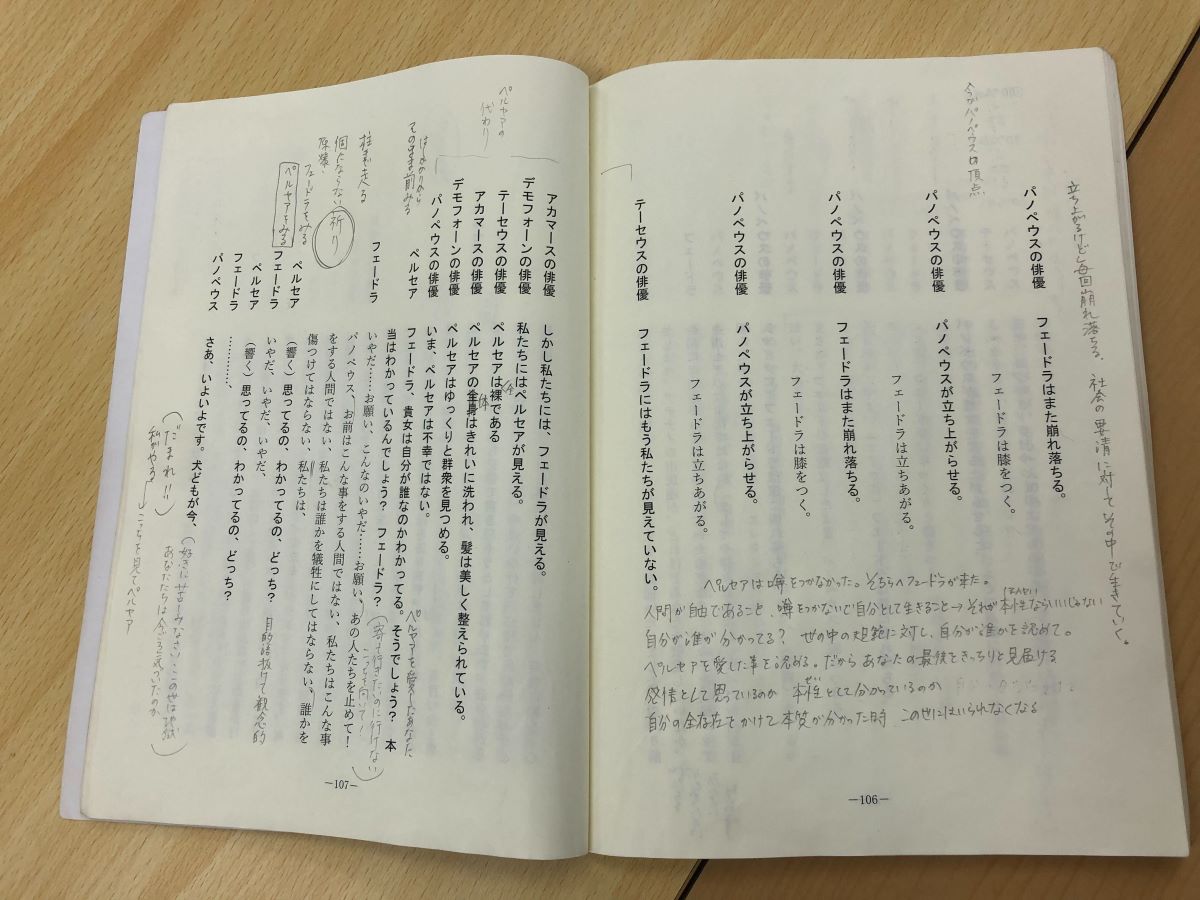 今がパノペウスは頂点
立ち上がるけど毎回崩れ落ちる。社会の要請に対してその中で生きていく。
パノペウスの俳優　フェードラはまた崩れ落ちる。
フェードラは膝をつく。
パノペウスの俳優　パノペウスが立ち上がらせる。
フェードラは立ちあがる。
パノペウスの俳優　フェードラはまた崩れ落ちる。
フェードラは膝をつく。
パノペウスの俳優　パノペウスが立ち上がらせる。
フェードラは立ち上がる。
テーセウスの俳優　フェードラにはもう私たちが見えていない。
ペルセアは嘘をつかなかった。そちらへフェードラが来た。
人間が自由であること、嘘をつかないで自分として生きること→それが本性ならいいじゃない
自分が誰が分かってる？ 世の中の規範に対し、自分が誰かを認めて。
ペルセアを愛した事を認める。だから あなたの最後をきっちりと見届ける
発信として思っているのか 本性として分かっているのか
自分の全存在をかけて本質が分かった時 この世にはいられなくなる
―106―
ペルセアの
代わり
アカマースの俳優　しかし私たちには、フェードラが見える。
デモフォーンの俳優　私たちにはペルセアが見える。
テーセウスの俳優　ペルセアは裸である
アカマースの俳優　ペルセアの全身はきれいに洗われ、髪は美しく整えられている。
全体
デモフォーンの俳優　ペルセアはゆっくりと群衆を見つめる。
パノペウスの俳優　いま、ペルセアは不幸ではない。
そのまま前みる
ペルセア　フェードラ、貴女は自分が誰なのかわかってる。そうでしょう？　本
当はわかっているんでしょう？　フェードラ？
ペルセアを愛したあなた
柱まで走る
フェードラ　いやだ……お願い、こんなのいやだ……お願い、あの人たちを止めて！
（寄って行きたいのに行けない）
こっちを向いて！
個にならない祈り
原爆、
パノペウス、お前はこんな事をする人間ではない、私たちはこんな事
をする人間ではない、私たちは誰かを犠牲にしてはならない、誰かを
傷つけてはならない、私たちは、
フェードラをみる
ペルセアをみる
ペルセア　（響く）思ってるの、わかってるの、どっち？
フェードラ　いやだ、いやだ、
目的語抜けて観念的
ペルセア　（響く）思ってるの、わかってるの、どっち？
フェードラ　…………、
パノペウス　さあ、いよいよです。犬どもが今、
（好きに苦しみなさい、この世は地獄
あなたたちは今ごろ気づいたのか）
（だまれ!!
私がやる）
こっちを見てペルセア
―107―